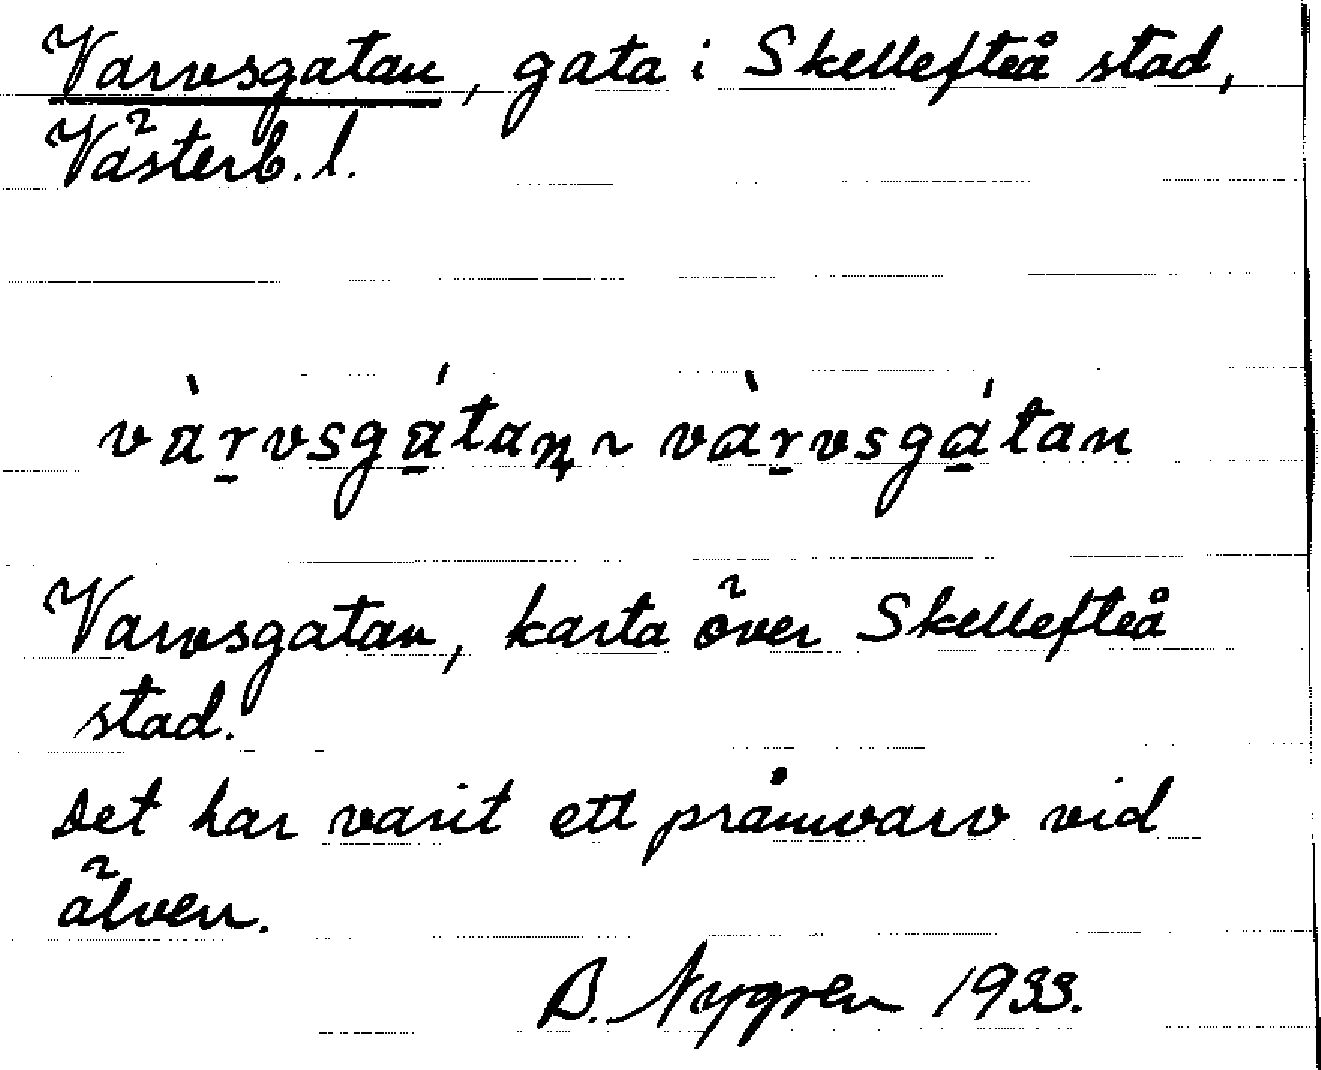 Varvsgatan, gata i Skellefteå stad,
Västerb. l.
vàṟvsgá̱taɳ ~ vàṟvsgá̱tan
Varvsgatan, karta över Skellefteå
stad.
Det har varit ett pråmvarv vid
älven.
B. Nygren 1933.